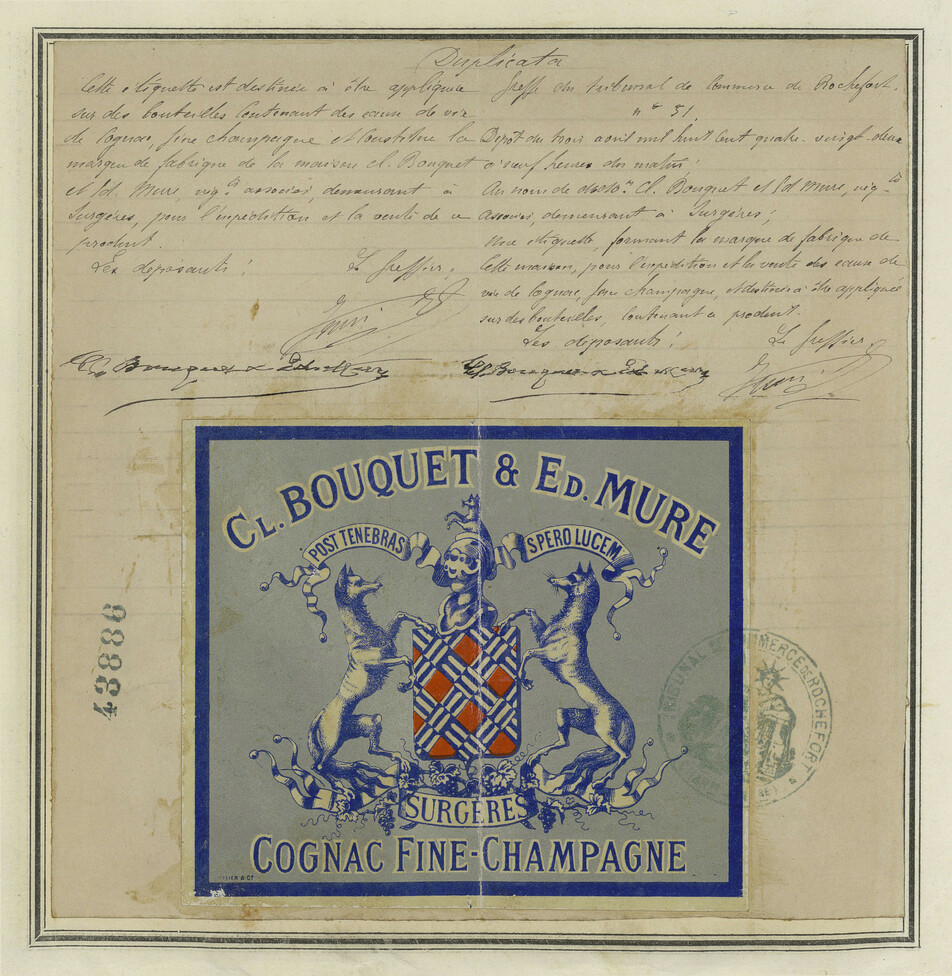 Duplicata
Cette étiquette est destinée à être appliquée
sur des bouteilles contenant des eaux de vie
de Cognac, fine champagne et constitue la
marque de fabrique de la maison Cl. Bouquet
et Ed. Mure, nég.ts associés, demeurant à
Surgères, pour l'expédition et la vente de ce
produit.
Les déposants:
Le Greffier,
Cl. Bouquet & Ed. Mure
Greffe du tribunal de commerce de Rochefort.
n° 51
Dépôt du trois avril mil huit cent quatre-vingt-deux
à neuf heures du matin;
Au nom de Cl. Bouquet et Ed Mure, nég.ts
associés, demeurant à Surgères;
Une étiquette, formant la marque de fabrique de
cette maison, pour l'expédition et la vente des eaux de
vie de Cognac, fine champagne, et destinée à être appliquée
sur des bouteilles, contenant ce produit.
Les déposants:
Le Greffier,
Cl. Bouquet & Ed. Mure
CL. BOUQUET & ED. MURE
POST TENEBRAS SPERO LUCEM
43886
TRIBUNAL DE COMMERCE DE ROCHEFORT
SURGÈRES
COGNAC FINE-CHAMPAGNE